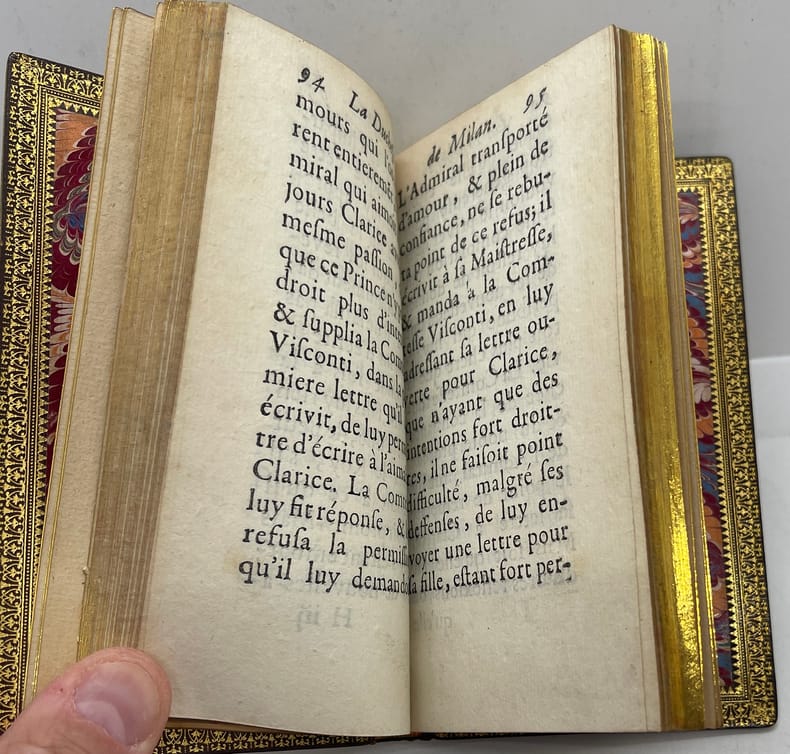 94 La Duche
mours qui l'o
rent entierem
miral qui aimo
jours Clarice a
meſme paſſion
que ce Prince n'
droit plus d'int
& ſupplia la Com
Viſconti, dans la
miere lettre qu'il
écrivit, de luy perm
tre d'écrire à l'aima
Clarice. La Com
luy fit réponſe, &
refuſa la permiſſ
qu'il luy demand
de Milan. 95
L'Admiral tranſporté
d'amour, & plein de
confiance, ne ſe rebu-
ta point de ce refus; il
écrivit à ſa Maiſtreſſe,
& manda à la Com-
teſſe Viſconti, en luy
adreſſant ſa lettre ou-
verte pour Clarice,
que n'ayant que des
intentions fort droit-
tes, il ne faiſoit point
difficulté, malgré ſes
deffenſes, de luy en-
voyer une lettre pour
ſa fille, eſtant fort per-